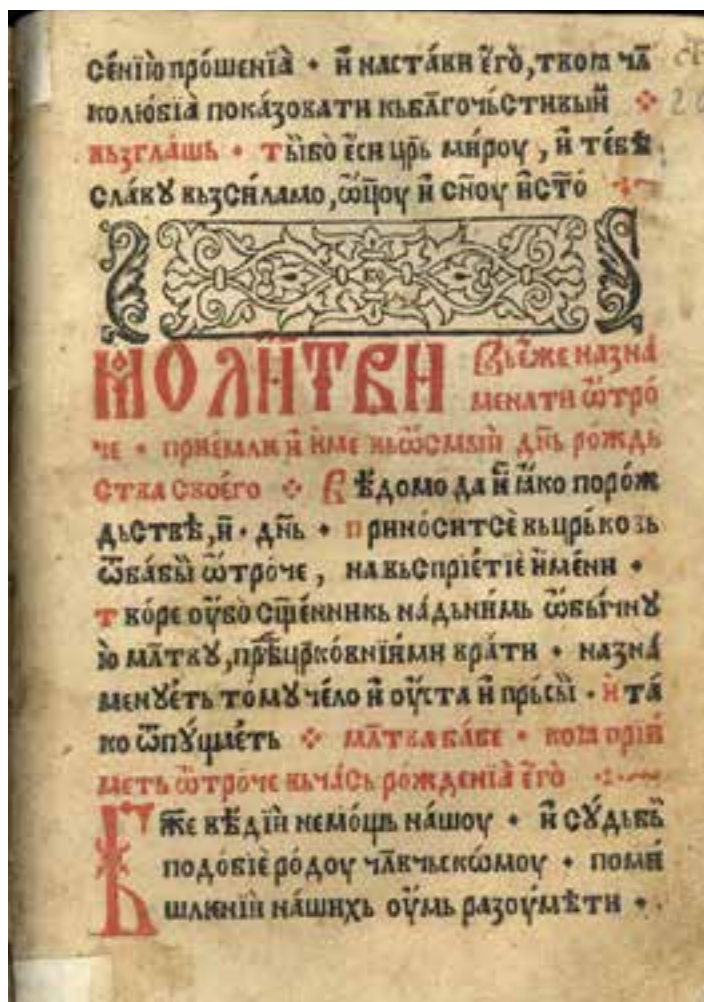 се́нїю про́шенїа̀ • и҆ наста́ви є҆го̀, твоꙗ чл҃
колю́бїа̀ пока́зовати кьбл҃гоч́ьстивыи҆ ⁘
вьзгла́шь • ты́бо̀ є҆си цр҃ь ми́роу , и҆ те́бѣ
сла́вꙋ вьзси́ламо, ѿц҃оу и҆ сн҃оу и҆ст҃о
МОЛИ́ТВИ Вье҆́же назна́
менати ѿтро́
че • прие́мли и҆ и҆ме вьѡ҆смыи дн҃ь ро́ждь
ства свое́го ⁘ Вѣ́домо да и҆ ꙗ҆ко поро́ж
дьствѣ, и҆ • дн҃ь • прино́ситсе вьцрь́ковь
ѿба́бы ѿтро́че , на вьсприе́тїе и҆́мени •
тво́ре оу҆́бо сщ҃е́нникь на́дьни́мь ѡ҆бы́чнꙋ
ю мл҃твꙋ, прѣ́цр҃ковнїи́ми врати • назна́
менꙋе́ть томꙋ че́ло и҆ оу҆ста и҆ прь́сы • и҆ та́
ко ѿпꙋ́щае́ть ⁘ мл҃тва ба́бе • коꙗ прїи́
меть ѿтро́че вьча́сь рожде́нїа̀ є҆го̀
Б҃же вѣ́дїи не́мо́щь на́шоу • и҆ сꙋ́дьбы̀
подо́бїе ро́доу чл҃вчьско́моу • поми́
шле́нїи на́шихь оу҆мь разоумѣ́ти •